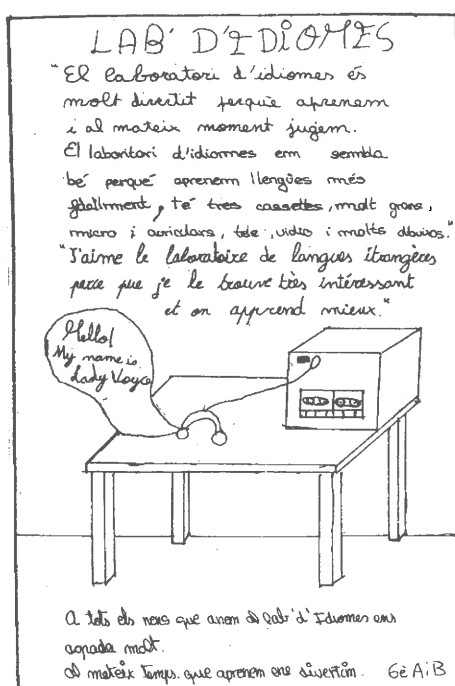 LAB' D'IDIOMES
"El laboratori d'idiomes és
molt divertit perquè aprenem
i al mateix moment juguem.
El laboritori d'idiomes em sembla
bé perqué aprenem llengües més
fàcilment, té tres cassettes, molt grans,
micro i auriculars, tele, vidio i molts dibuixos."
"J'aime le laboratoire de langues étrangères
parce que je le trouve très intéressant
et on apprend mieux."
Hello!
My name is
Lady Voyo
A tots els nens que anem al Lab' d'Idiomes ens
agrada molt.
Al mateix temps que aprenem ens divertim. 6è A i B